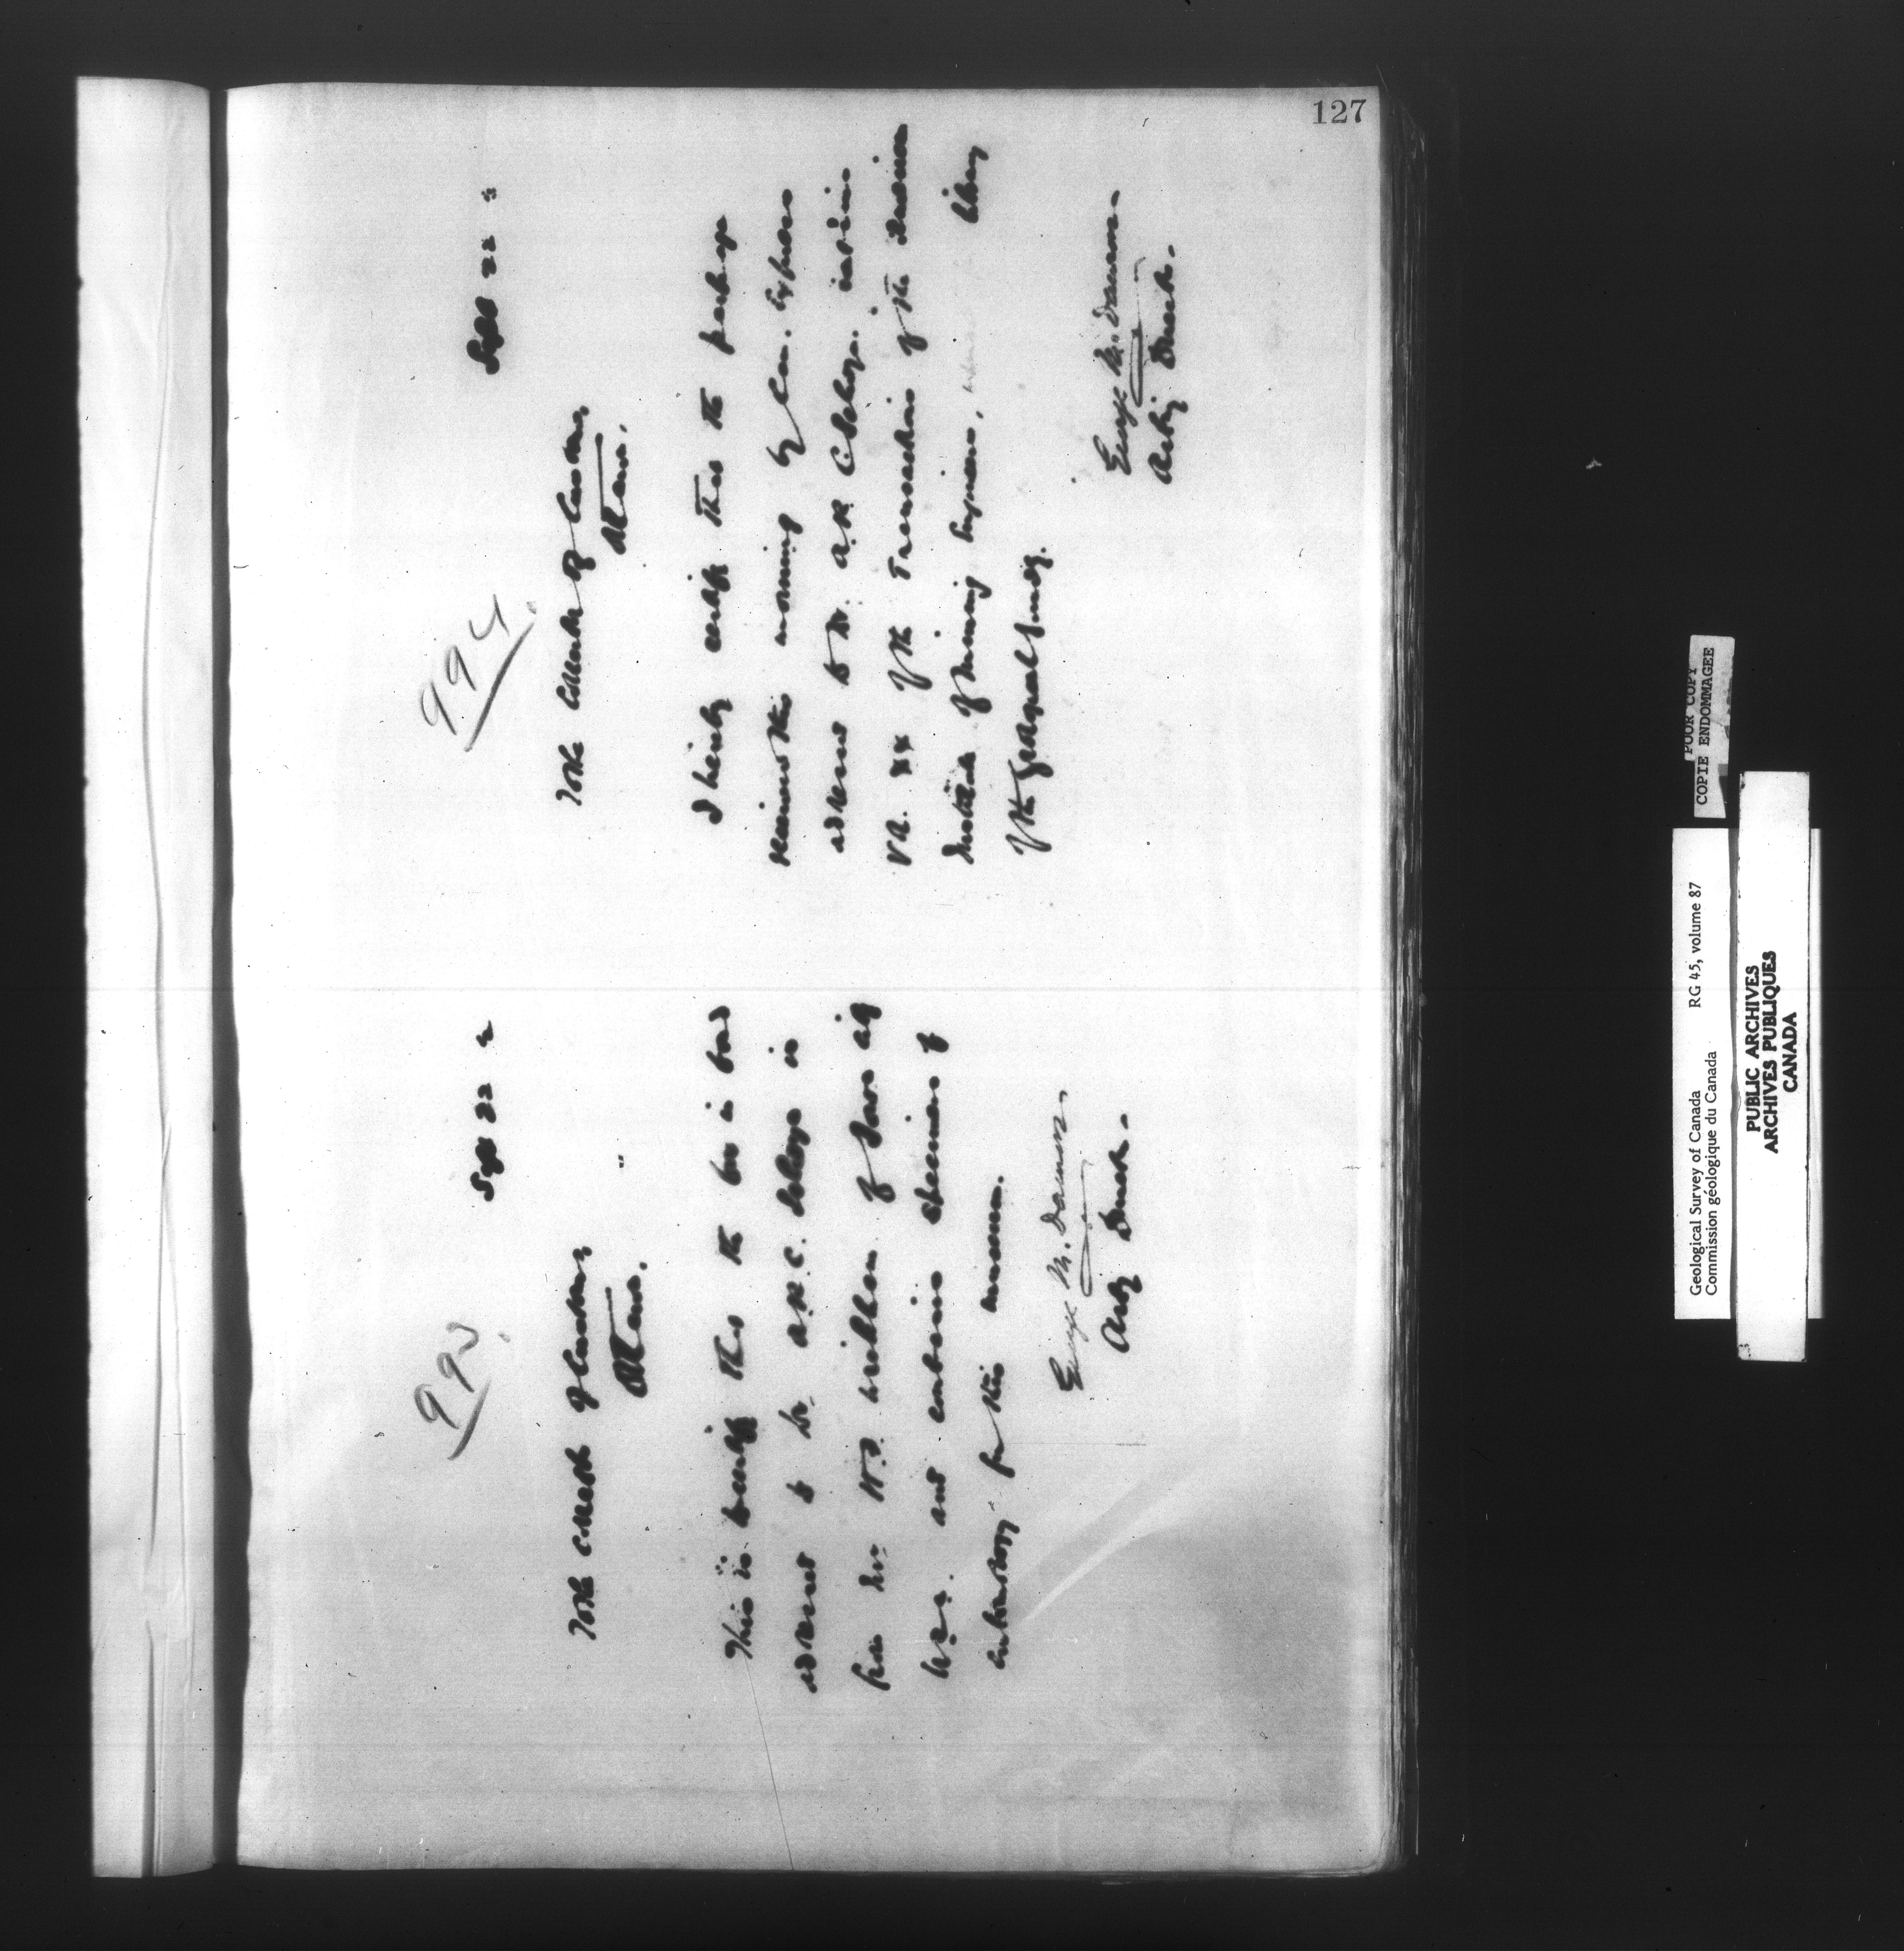 127
993
Sept 22
To the Collector of Customs
Ottawa.
This is to certify that the box in bond
addressed to Dr. A.R.C. Selwyn is
from Mr W.P. of Iowa City
U.S.A. and contains specimens of
for this museum.
George M. Dawson
Actg Director.
994
Sept 22
To the Collector of Customs,
Ottawa.
I hereby certify that the package
received this morning by Can. Express
addressed to Dr. A.R.C. Selwyn. contains
Vol. XX of the Transactions of the American
Institute of Mining Engineers, library
of the Geological Survey.
George M. Dawson.
Actg Director.
POOR COPY
COPIE ENDOMMAGEE
Geological Survey of Canada RG 45, volume 87
Commission géologique du Canada
PUBLIC ARCHIVES
ARCHIVES PUBLIQUES
CANADA